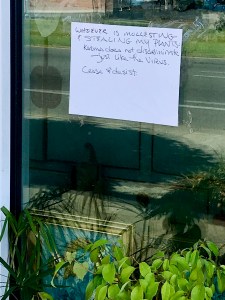 WHOEVER IS MOLLESTING
& STEALING MY PLANTS.
Karma does not discriminate
just like the Virus.
Cease & desist.